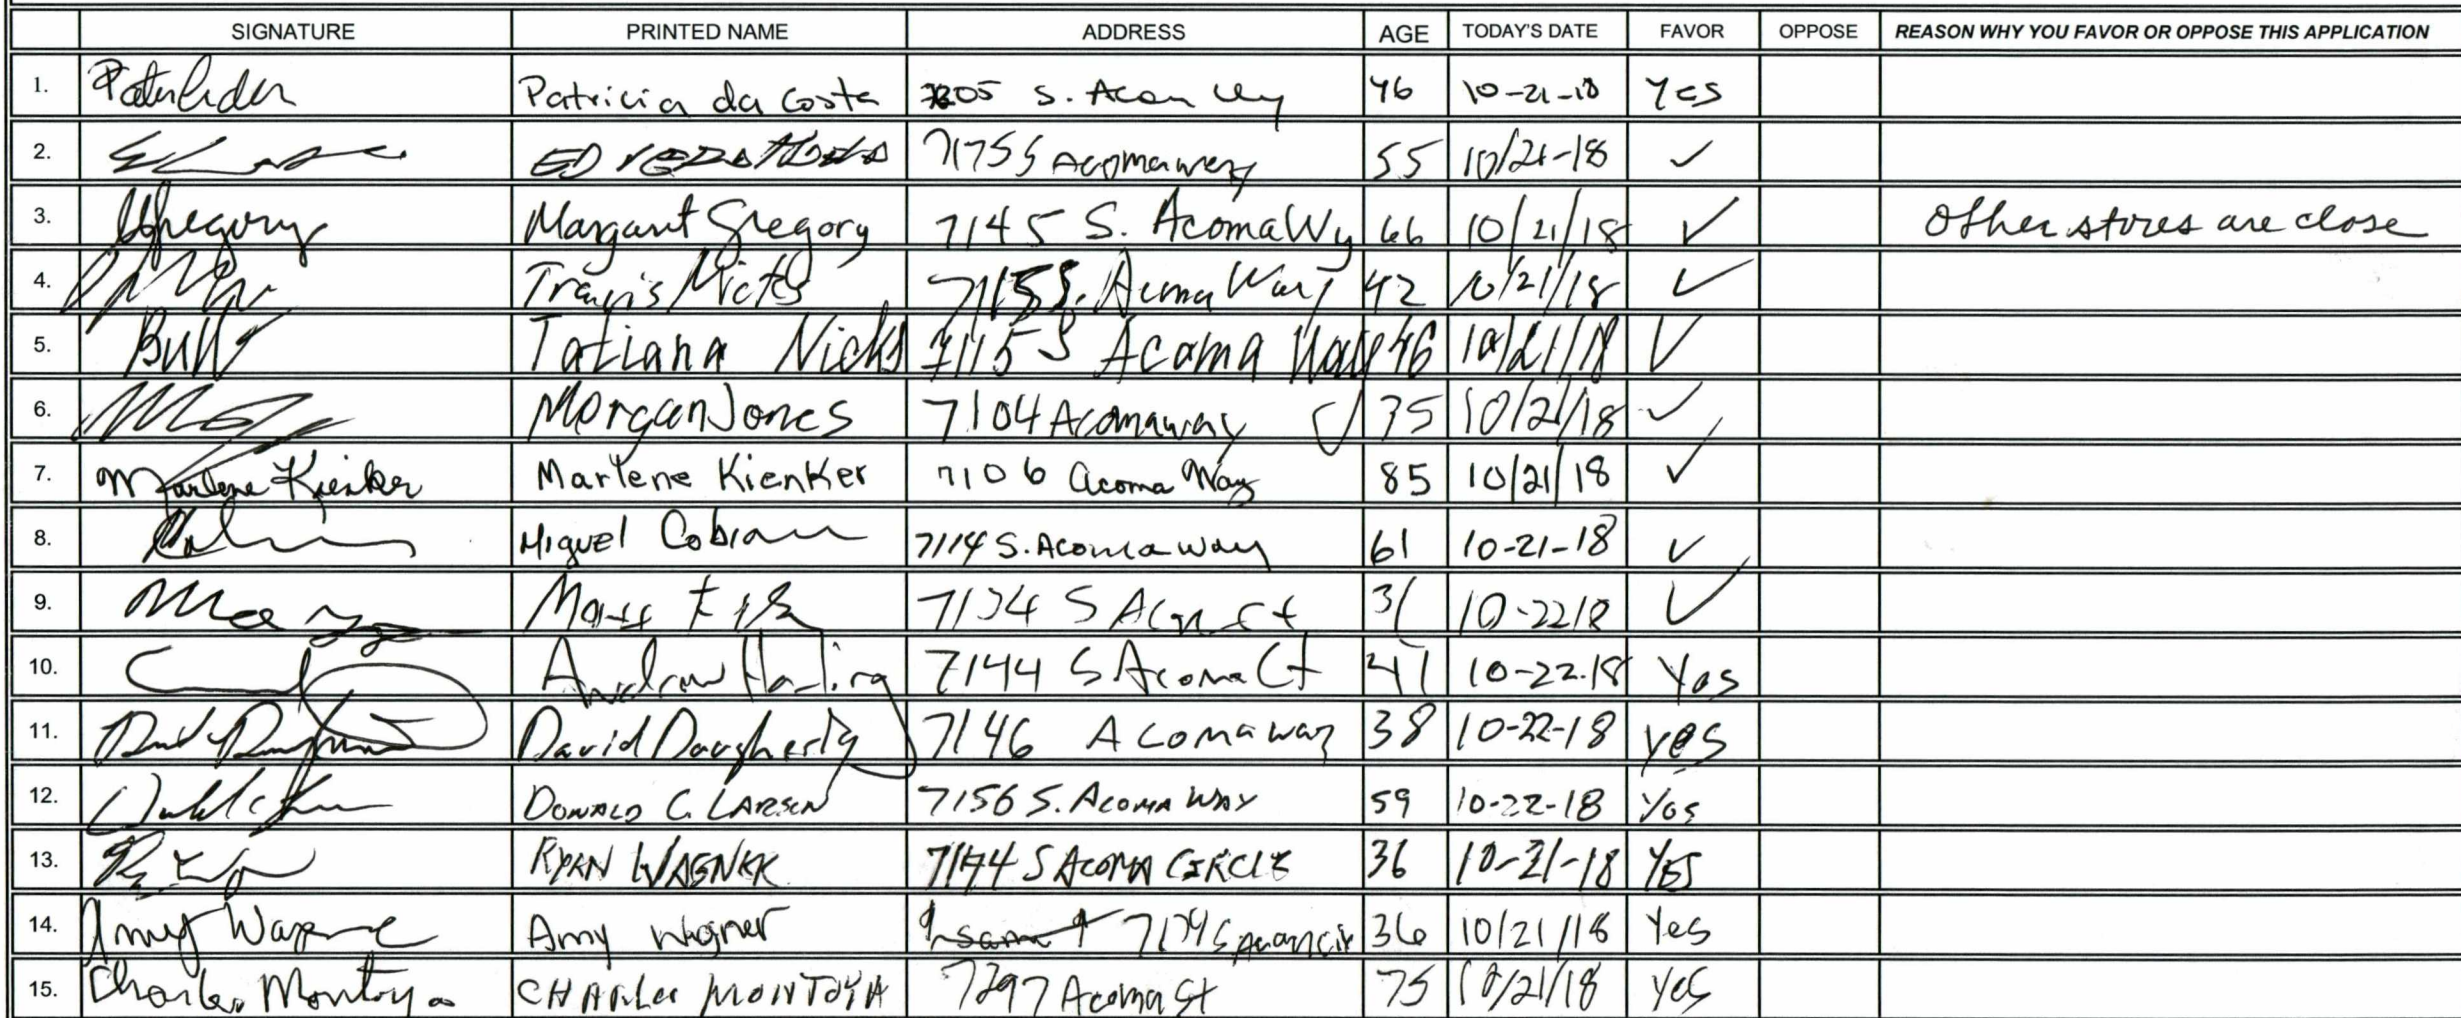 SIGNATURE PRINTED NAME ADDRESS AGE TODAY'S DATE FAVOR OPPOSE REASON WHY YOU FAVOR OR OPPOSE THIS APPLICATION
1. Patricia da Costa S. 46 10-21-18 Yes
2. ED 7175 S Acoma way 55 10/21-18 ✓
3. Gregory Margaret Gregory 7145 S. Acoma Wy 66 10/21/18 ✓ Other stores are close
4. Travis Nicks 7115 S. Acoma Way 42 10/21/18 ✓
5. Tatiana Nicks 7115 S Acoma Way 46 10/21/18 ✓
6. Morgan Jones 7104 Acoma way 35 10/21/18 ✓
7. Marlene Kienker Marlene Kienker 7106 Acoma Way 85 10/21/18 ✓
8. Miguel 7114 S. Acoma way 61 10-21-18 ✓
9. S 31 10-22 18 ✓
10. Andrew 7144 S Acoma Ct 41 10-22-18 Yes
11. David Daugherty 7146 Acoma way 38 10-22-18 yes
12. DONALD C. LARSEN 7156 S. ACOMA WAY 59 10-22-18 Yes
13. RYAN WAGNER 7174 S ACOMA CIRCLE 36 10-21-18 YES
14. Amy Wagner Amy Wagner same 7174 S 36 10/21/18 Yes
15. Charles Montoya CHARLES MONTOYA 7297 Acoma St 75 10/21/18 Yes